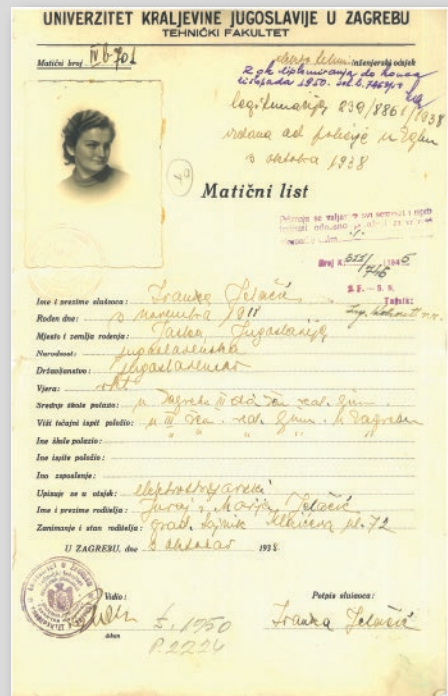 UNIVERZITET KRALJEVINE JUGOSLAVIJE U ZAGREBU
TEHNIČKI FAKULTET
Matični broj IV b-701
inženjerski odsjek
Rok diplomiranja do konca
listopada 1950.
legitimacija 239/8861/1938
izdana od policije u Zgbu
3 oktobra 1938
40
Matični list
Priznaje se valjanost svi semestri i ispiti
Broj X. 515/746 1945
Tajnik:
Ime i prezime slušača: Ivanka Jelačić
Rođen dne: 3 novembra 1918
Mjesto i zemlja rođenja: Jaska, Jugoslavija
Narodnost: jugoslavenska
Državljanstvo: jugoslavensko
Vjera: rkt
Srednje škole polazio: u Zagrebu III državna žen. real. gimn.
Viši tečajni ispit položio: u III žen. real. gimn. u Zagrebu
Ine škole polazio: " " " "
Ine ispite položio:
Ino zaposlenje:
Upisuje se u otsjek: elektrostrojarski
Ime i prezime roditelja: Juraj i Marija Jelačić
Zanimanje i stan roditelja: grad. 72
U ZAGREBU, dne 3 oktobar 1938
Vidio:
Potpis slušača:
dekan
Ivanka Jelačić
I. 1950
P. 2224